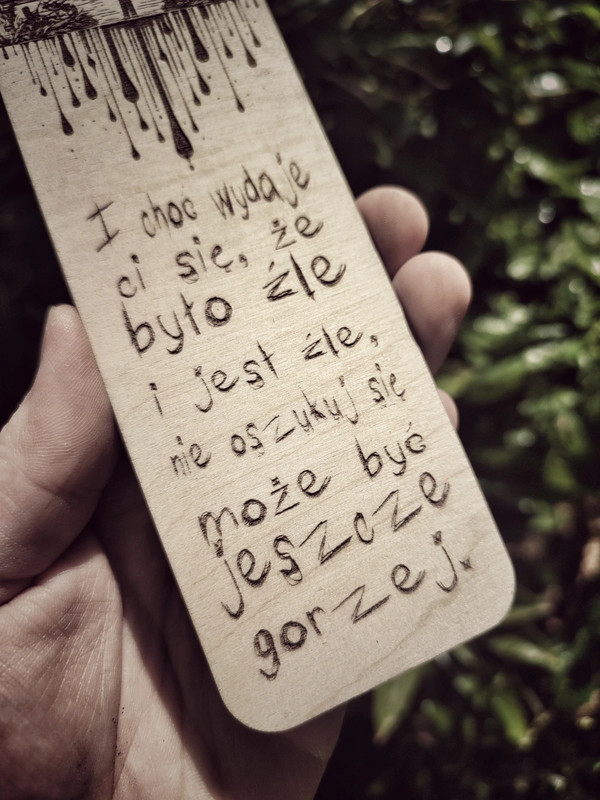 I choć wydaje
ci się, że
było źle
i jest źle,
nie oszukuj się
może być
jeszcze
gorzej.